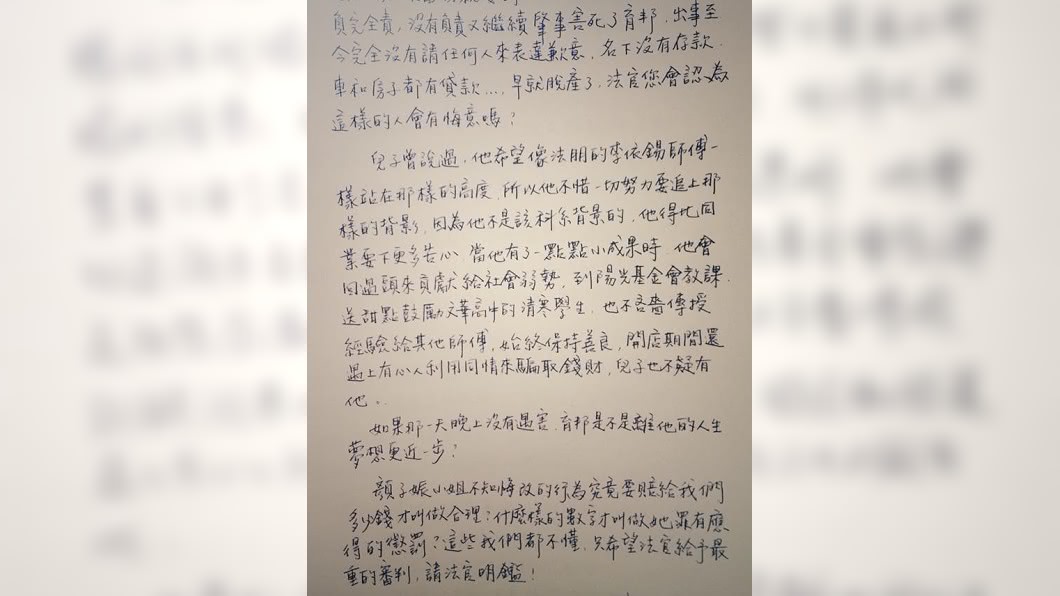 負完全責,沒有負責又繼續肇事害死了育邦,出事至
今完全沒有請任何人來表達歉意,名下沒有存款.
車和房子都有貸款...,早就脫產了,法官您會認為
這樣的人會有悔意嗎?
兒子曾說過,他希望像法朋的李依錫師傅一
樣站在那樣的高度,所以他不惜一切努力要追上那
樣的背影,因為他不是該科系背景的,他得比同
業要下更多苦心,當他有了一點點小成果時,他會
回過頭來貢獻給社會弱勢,到陽光基金會教課.
送甜點鼓勵文華高中的清寒學生,也不吝嗇傳授
經驗給其他師傅,始終保持善良,開店期間還
遇上有心人利用同情來騙取錢財,兒子也不疑有
他。
如果那一天晚上沒有遇害,育邦是不是離他的人生
夢想更近一步?
顏子娠小姐不知悔改的行為究竟要賠給我們
多少錢才叫做合理?什麼樣的數字才叫做她罪有應
得的懲罰?這些我們都不懂,只希望法官給予最
重的審判,請法官明鑑!